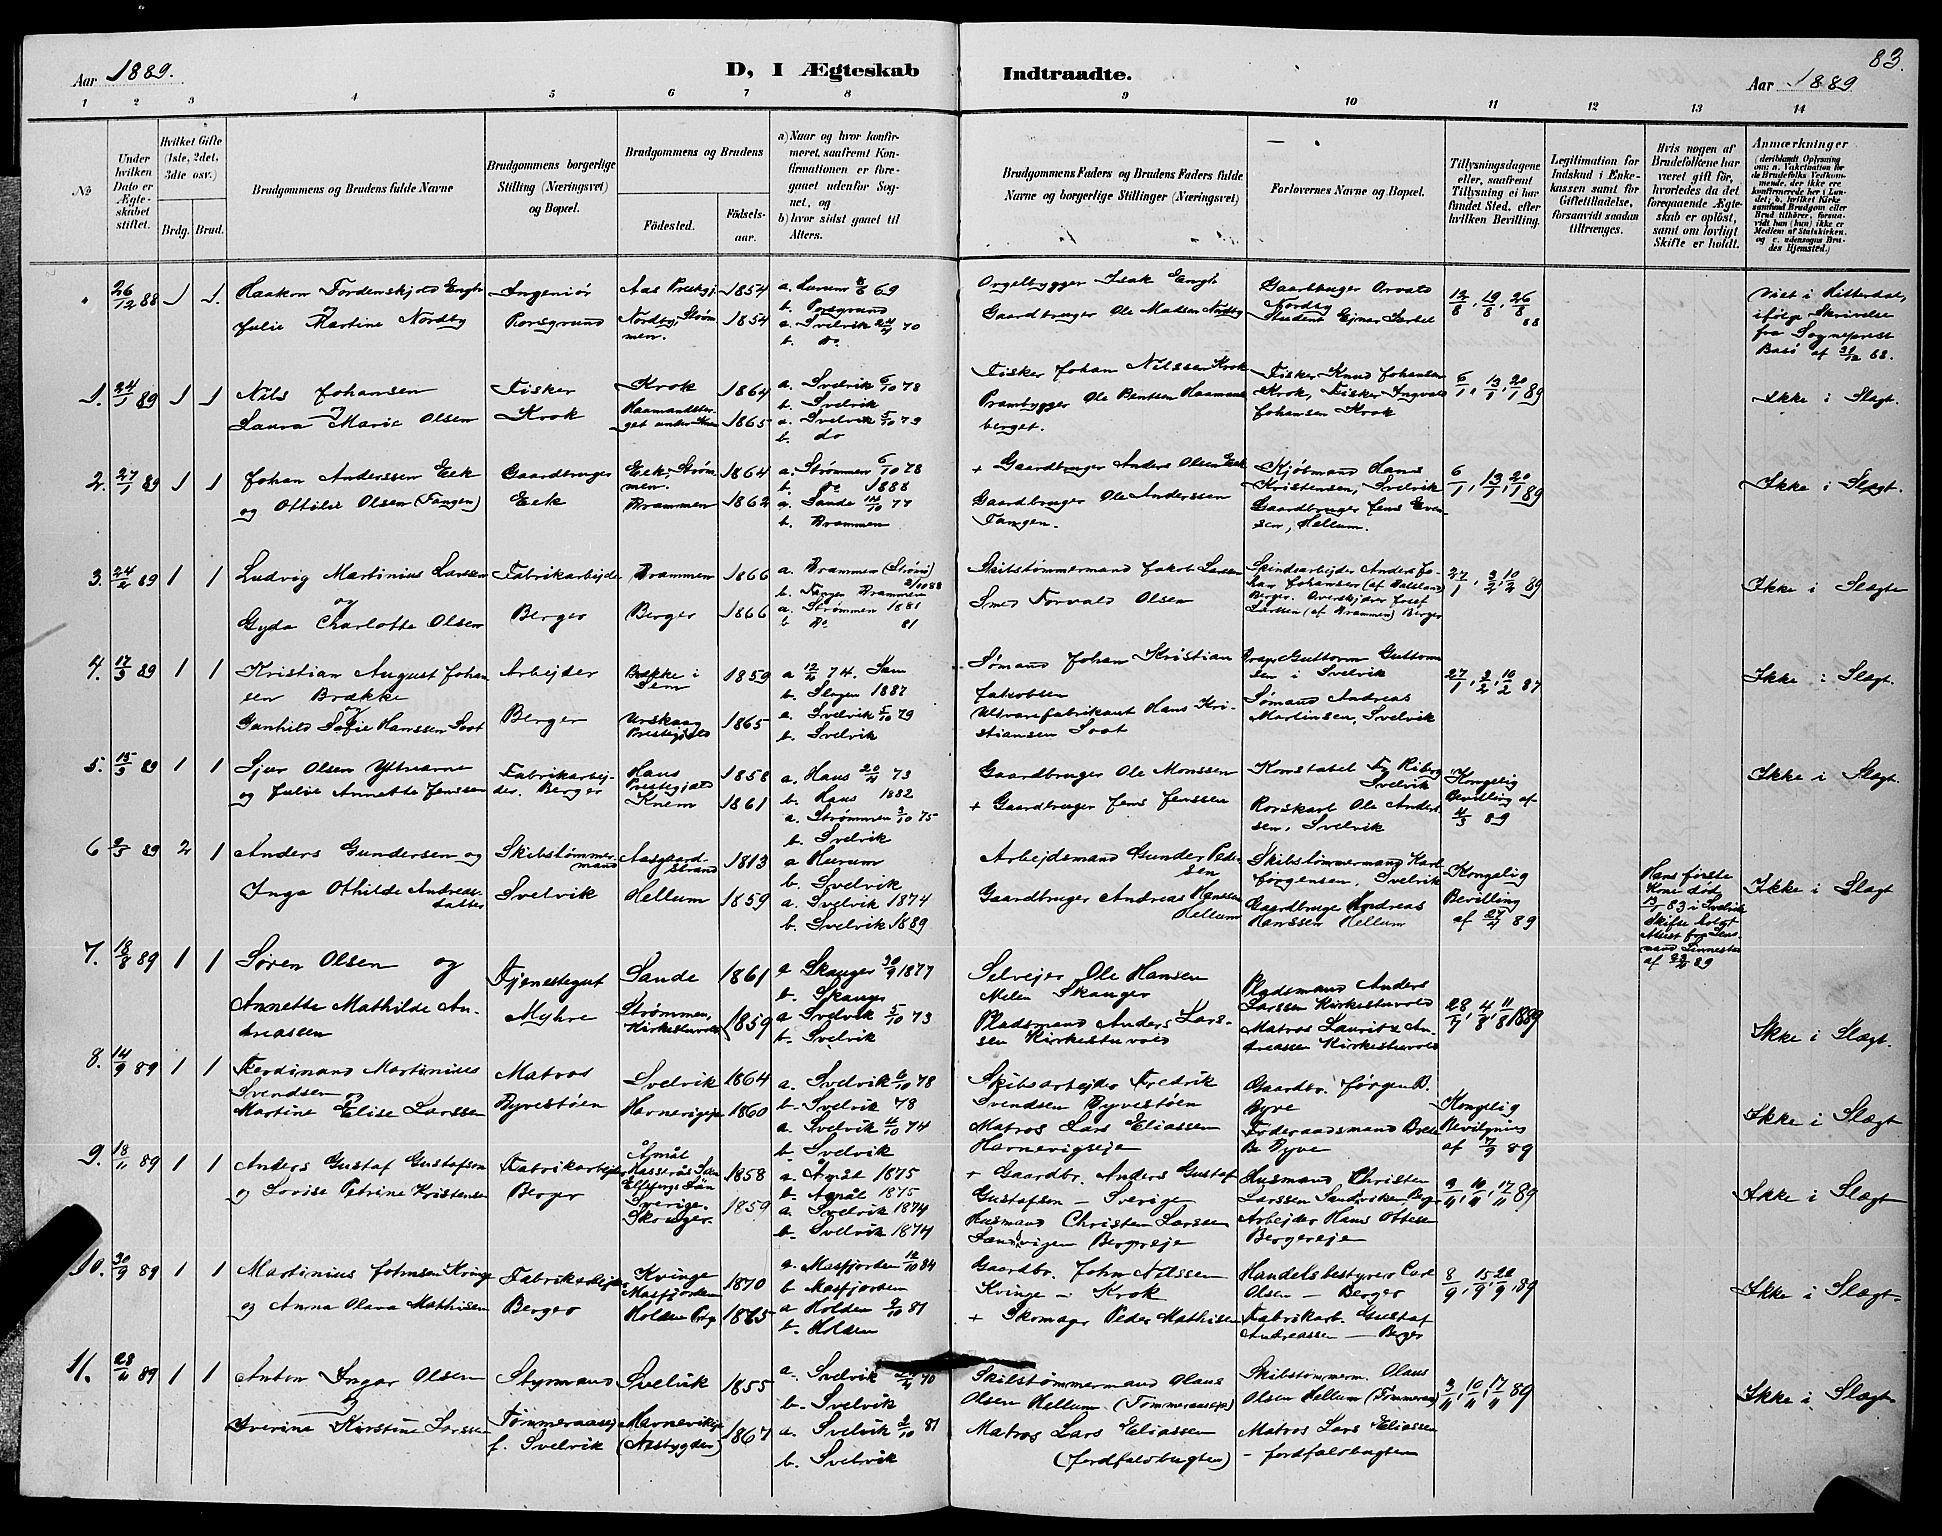 Aar 1889.
D, I Ægteskab Indtraadte.
Aar 1889
83.
1 2 3 4 5 6 7 8 9 10 11 12 13 14
No
Under hvilken Dato er Ægteskabet stiftet.
Hvilket Gifte (1ste, 2det, 3die osv.)
Brdg. Brud.
Brudgommens og Brudens fulde Navne
Brudgommens borgerlige Stilling (Næringsvei) og Bopæl.
Brudgommens og Brudens
Fødested.
Fødselsaar.
a) Naar og hvor konfirmeret, saafremt Konfirmationen er foregaaet udenfor Sognet, og
b) hvor sidst gaaet til Alters.
Brudgommens Faders og Brudens Faders fulde Navne og borgerlige Stillinger (Næringsvei)
Forlovernes Navne og Bopæl.
Tillysningsdagene eller, saafremt Tillysning ei har fundet Sted, efter hvilken Bevilling.
Legitimation for Indskud i Enkekassen samt for Giftetilladelse, forsaavidt saadan tiltrænges.
Hvis nogen af Brudefolkene har været gift før, hvorledes da det foregaaende Ægteskab er opløst, samt om lovligt Skifte er holdt.
Anmærkninger
(deriblandt Oplysning om: a. Vakcination for de Brudefolks Vedkommende, der ikke ere konfirmerede her i Landet; b. hvilket Kirkesamfund Brudgom eller Brud tilhører, forsaavidt han (hun) ikke er Medlem af Statskirken, og c. udensogns Brudes Hjemsted.)
26/12 88 1 1. Haakon Tordenskjold Engh
og
Julie Martine Nordby
Ingeniør
Porsgrund
Aas Prestgj. 1854
Nordby, Strømmen. 1854
a. Lurum 8/8 69
b. Porsgrund
a. Svelvik 24/4 70
b. do
Orgelbygger Isak Engh
Gaardbruger Ole Madsen Nordby
Gaardbruger Orvald Nordby
Student Ejnar
12/8, 19/8, 26/8 88
Viet i Hitterdal, ifølge Skrivelse fra Sogneprest
af 31/12 88.
1. 24/1 89 1 1 Nils Johansen
og
Laura Marie Olsen
Fisker
Krok
Krok 1864
1865
a. Svelvik 6/10 78
b. Svelvik
a. Svelvik 5/10 79
b. do
Fisker Johan Nilssen Krok
Prambygger Ole Bentsen Haamandsberget.
Fisker Knud Johansen Krok, Fisker Ingvald Johansen Krok
6/1, 13/1, 20/1 89
Ikke i Slægt.
2. 27/1 89 1 1 Johan Anderssen Eek
og Ottilie Olsen (Tangen)
Gaardbruger
Eek
Eek, Strømmen. 1864
Drammen 1862
a. Strømmen 6/10 78
b. do 1888
a. Sande 14/10 77
b. Drammen
+ Gaardbruger Anders Olsen Eek
Gaardbruger Ole Anderssen Tangen.
Kjøbmand Hans Kristensen, Svelvik
Gaardbruger Jens Evensen, Hellum.
6/1, 13/1, 20/1 89
Ikke i Slægt.
3. 24/2 89 1 1 Ludvig Martinius Larsen
og
Gyda Charlotte Olsen
Fabrikarbejder
Berger
Drammen 1866
Berger 1866
a. Drammen (Strøm) 2/10 88
b. Tangen Drammen
a. Strømmen 1881
b. do 81
Skibstømmermand Jakob Larsen
Smed Torvald Olsen
Spindearbejder Anders Johan Johansen (af Dalsland) Berger. Overskjærer Josef Larssen (af Drammen) Berger
27/1, 3/2, 10/2 89
Ikke i Slægt
4. 17/3 89 1 1 Kristian August Johansen Brække
og
Gunhild Sofie Hanssen Soot
Arbejder
Berger
Brække i Sem 1859
Urskoug Prestegjeld 1865
a 12/4 74. Sem
b. Slagen 1887
a. Svelvik 5/10 79
b. Svelvik
Sømand Johan Kristian Jakobsen
Uldvarefabrikant Hans Kristiansen Soot
Guttorm Guttormsen i Svelvik
Sømand Andreas Martinsen, Svelvik
27/1, 3/2, 10/2 87
Ikke i Slægt.
5. 15/3 89 1 1 Sjur Olsen Yttrearne
og Julie Annette Jenssen
Fabrikarbejder. Berger
Haus Prestegjeld 1858
Knem 1861
a. Haus 20/4 73
b. Haus 1882
a. Strømmen 3/10 75
b. Svelvik
Gaardbruger Ole Monssen
+ Gaardbruger Jens Jenssen
Konstabel Fr. Riberg Svelvik
Rorskarl Ole Anderssen, Svelvik
Kongelig Bevilling af 4/3 89
Ikke i Slægt.
6 2/5 89 2 1 Anders Gundersen og
Inga Othilde Andreasdatter
Skibstømmermand
Svelvik
Aasgaardstrand 1813
Hellum 1859
a Hurum
b. Svelvik
a. Svelvik 1874
b. Svelvik 1889
Arbejdsmand Gunder Pedersen
Gaardbruger Andreas Hanssen Hellum
Skibstømmermand Karl Jørgensen, Svelvik
Gaardbruge Andreas Hanssen Hellum
Kongelig Bevilling af 27/4 89
Hans første Kone død 13/5 83 i Svelvik
Skifte holdt Attest fra Lensmand
af 23/4 89
Ikke i Slægt
7. 18/8 89 1 1 Søren Olsen og
Annette Mathilde Andreassen
Tjenestegut
Myhre
Sande 1861
Strømmen, Kirkestuvold 1859
a Skauger 30/9 1877
b. Skauger
a Svelvik 5/10 73
b. Svelvik
Selvejer Ole Hansen Melen Skauger
Pladsmand Anders Larssen Kirkestuvold
Pladsmand Anders Larssen Kirkestuvold
Matros Lauritz Andreassen Kirkestuvold
28/7, 4/8, 11/8 1889
Ikke i Slægt.
8. 14/9 89 1 1 Ferdinand Martinius Svendsen og
Martine Elise Larssen
Matros
Byvestøen
Svelvik 1864
Havnevigeje 1860
a. Svelvik 6/10 78
b. Svelvik 78
a. Svelvik 4/10 74
b. Svelvik
Skibsarbejder Fredrik Svendsen Byvestøen
Matros Lars Eliassen Havnevigseje
Gaardbr. Jørgen B. Byve
Føderaadsmand Brede Byve
Kongelig Bevilgning af 7/9 89
Ikke i Slægt
9. 18/11 89 1 1 Anders Gustaf Gustafson
og Lovise Petrine Kristensen
Fabrikarbejder
Berger
Åmål
Elfsborgs Län Sverige. 1858
Skouger. 1859
a. Amål 1875
b. Amål 1875
a. Svelvik 1874
b. Svelvik 1874
+ Gaardbr. Anders Gustaf Gustafson — Sverige
Husmand Christen Larssen Sandvigen Bergseje
Husmand Christen Larssen Sandviken Berger
Arbejder Hans Ottesen Bergereje
3/11, 10/11, 17/11 89
Ikke i Slægt
10. 30/9 89 1 1 Martinius Johnsen Kvinge
og Anna Olava Mathisen
Fabrikarbejder
Berger
Kvinge Masfjorden 1870
Holden Prtgj. 1865
a. Masfjorden 12/10 84
b. Masfjorden
a Holden 2/10 81
b. Holden
Gaardbr. John Nilssen Kvinge i Krok
+ Skomager Peder Mathisen
Handelsbestyrer Carl Olsen — Berger
Fabrikarb. Gustaf Andreassen — Berger
8/9, 15/9, 20/9, 89
Ikke i Slægt.
11. 28/11 89 1 1 Anton Ingvar Olsen
og
Iverine Kirstine Larssen
Styrmand
Tømmeraaseje f. Svelvik
Svelvik 1855
Havnevikeje (Nesbygden) 1867
a. Svelvik 24/4 70
b. Svelvik
a. Svelvik 2/10 81
b. Svelvik
Skibstømmermand Olaus Olsen Hellum (Tømmeraaseje)
Matros Lars Eliassen (Jordfaldsbugten)
Skibstømmerm. Olaus Olsen Hellum (Tømmeraas)
Matros Lars Eliassen – Jordfalsbugten
3/11, 10/11, 17/11 89
Ikke i Slægt